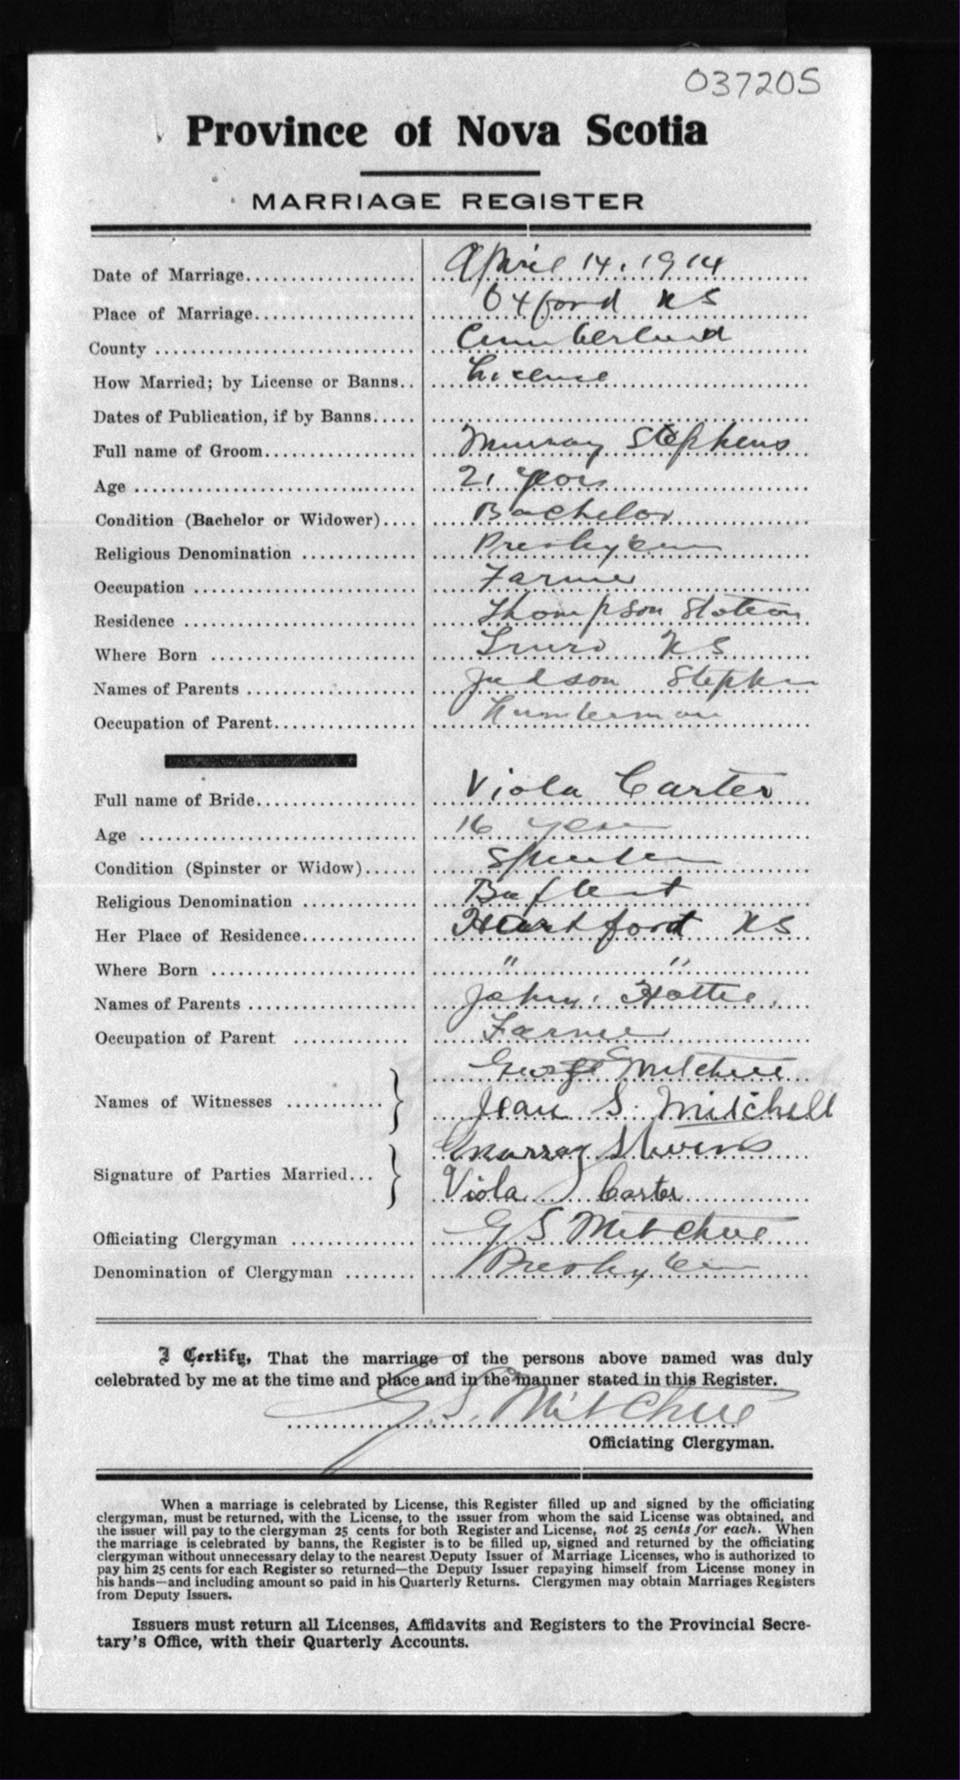 037205
Province of Nova Scotia
MARRIAGE REGISTER
Date of Marriage.................... April 14, 1914
Place of Marriage................... Oxford NS
County .............................. Cumberland
How Married; by License or Banns.. License
Dates of Publication, if by Banns.....
Full name of Groom.................. Murray Stephens
Age .................................. 21 years
Condition (Bachelor or Widower).... Bachelor
Religious Denomination ............. Presbyterian
Occupation .......................... Farmer
Residence ........................... Thompson Station
Where Born ........................ Truro NS
Names of Parents .................... Judson Stephen
Occupation of Parent................. Lumberman
Full name of Bride................... Viola Carter
Age ................................. 16 years
Condition (Spinster or Widow)...... Spinster
Religious Denomination ............. Baptist
Her Place of Residence............. Hartford NS
Where Born ........................ " "
Names of Parents .................... John, Hattie,
Occupation of Parent .............. Farmer
George Mitchell
Names of Witnesses ............ } Jean S. Mitchell
Murray Stevens
Signature of Parties Married... } Viola Carter
Officiating Clergyman ............... G S Mitchell
Denomination of Clergyman ........ Presbyterian
I Certify, That the marriage of the persons above named was duly
celebrated by me at the time and place and in the manner stated in this Register.
G. S. Mitchell
Officiating Clergyman.
When a marriage is celebrated by License, this Register filled up and signed by the officiating
clergyman, must be returned, with the License, to the issuer from whom the said License was obtained, and
the issuer will pay to the clergyman 25 cents for both Register and License, not 25 cents for each. When
the marriage is celebrated by banns, the Register is to be filled up, signed and returned by the officiating
clergyman without unnecessary delay to the nearest Deputy Issuer of Marriage Licenses, who is authorized to
pay him 25 cents for each Register so returned—the Deputy Issuer repaying himself from License money in
his hands—and including amount so paid in his Quarterly Returns. Clergymen may obtain Marriages Registers
from Deputy Issuers.
Issuers must return all Licenses, Affidavits and Registers to the Provincial Secre-
tary's Office, with their Quarterly Accounts.